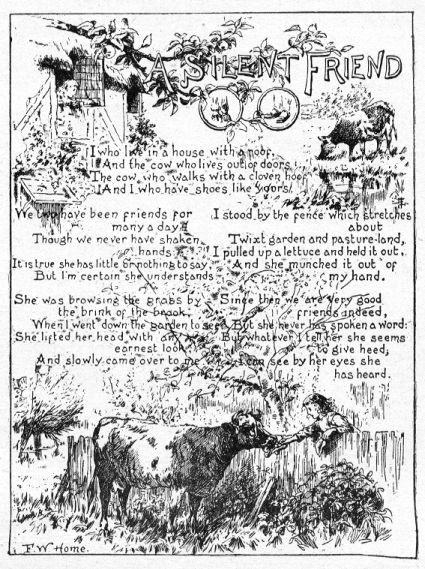 A SILENT FRIEND
I who live in a house with a roof,
And the cow who lives out of doors,
The cow who walks with a cloven hoof
And I who have shoes like yours,
We two have been friends for
many a day
Though we never have shaken
hands
It is true she has little or nothing to say,
But I'm certain she understands
She was browsing the grass by
the brink of the brook,
When I went down the garden to seed,
She lifted her head with an
earnest look,
And slowly came over to me
I stood by the fence which stretches
about
Twixt garden and pasture-land,
I pulled up a lettuce and held it out,
And she munched it out of
my hand.
Since then we are very good
friends indeed,
But she never has spoken a word:
But whatever I tell her she seems
to give heed,
I can see by her eyes she
has heard.
F. W Home.